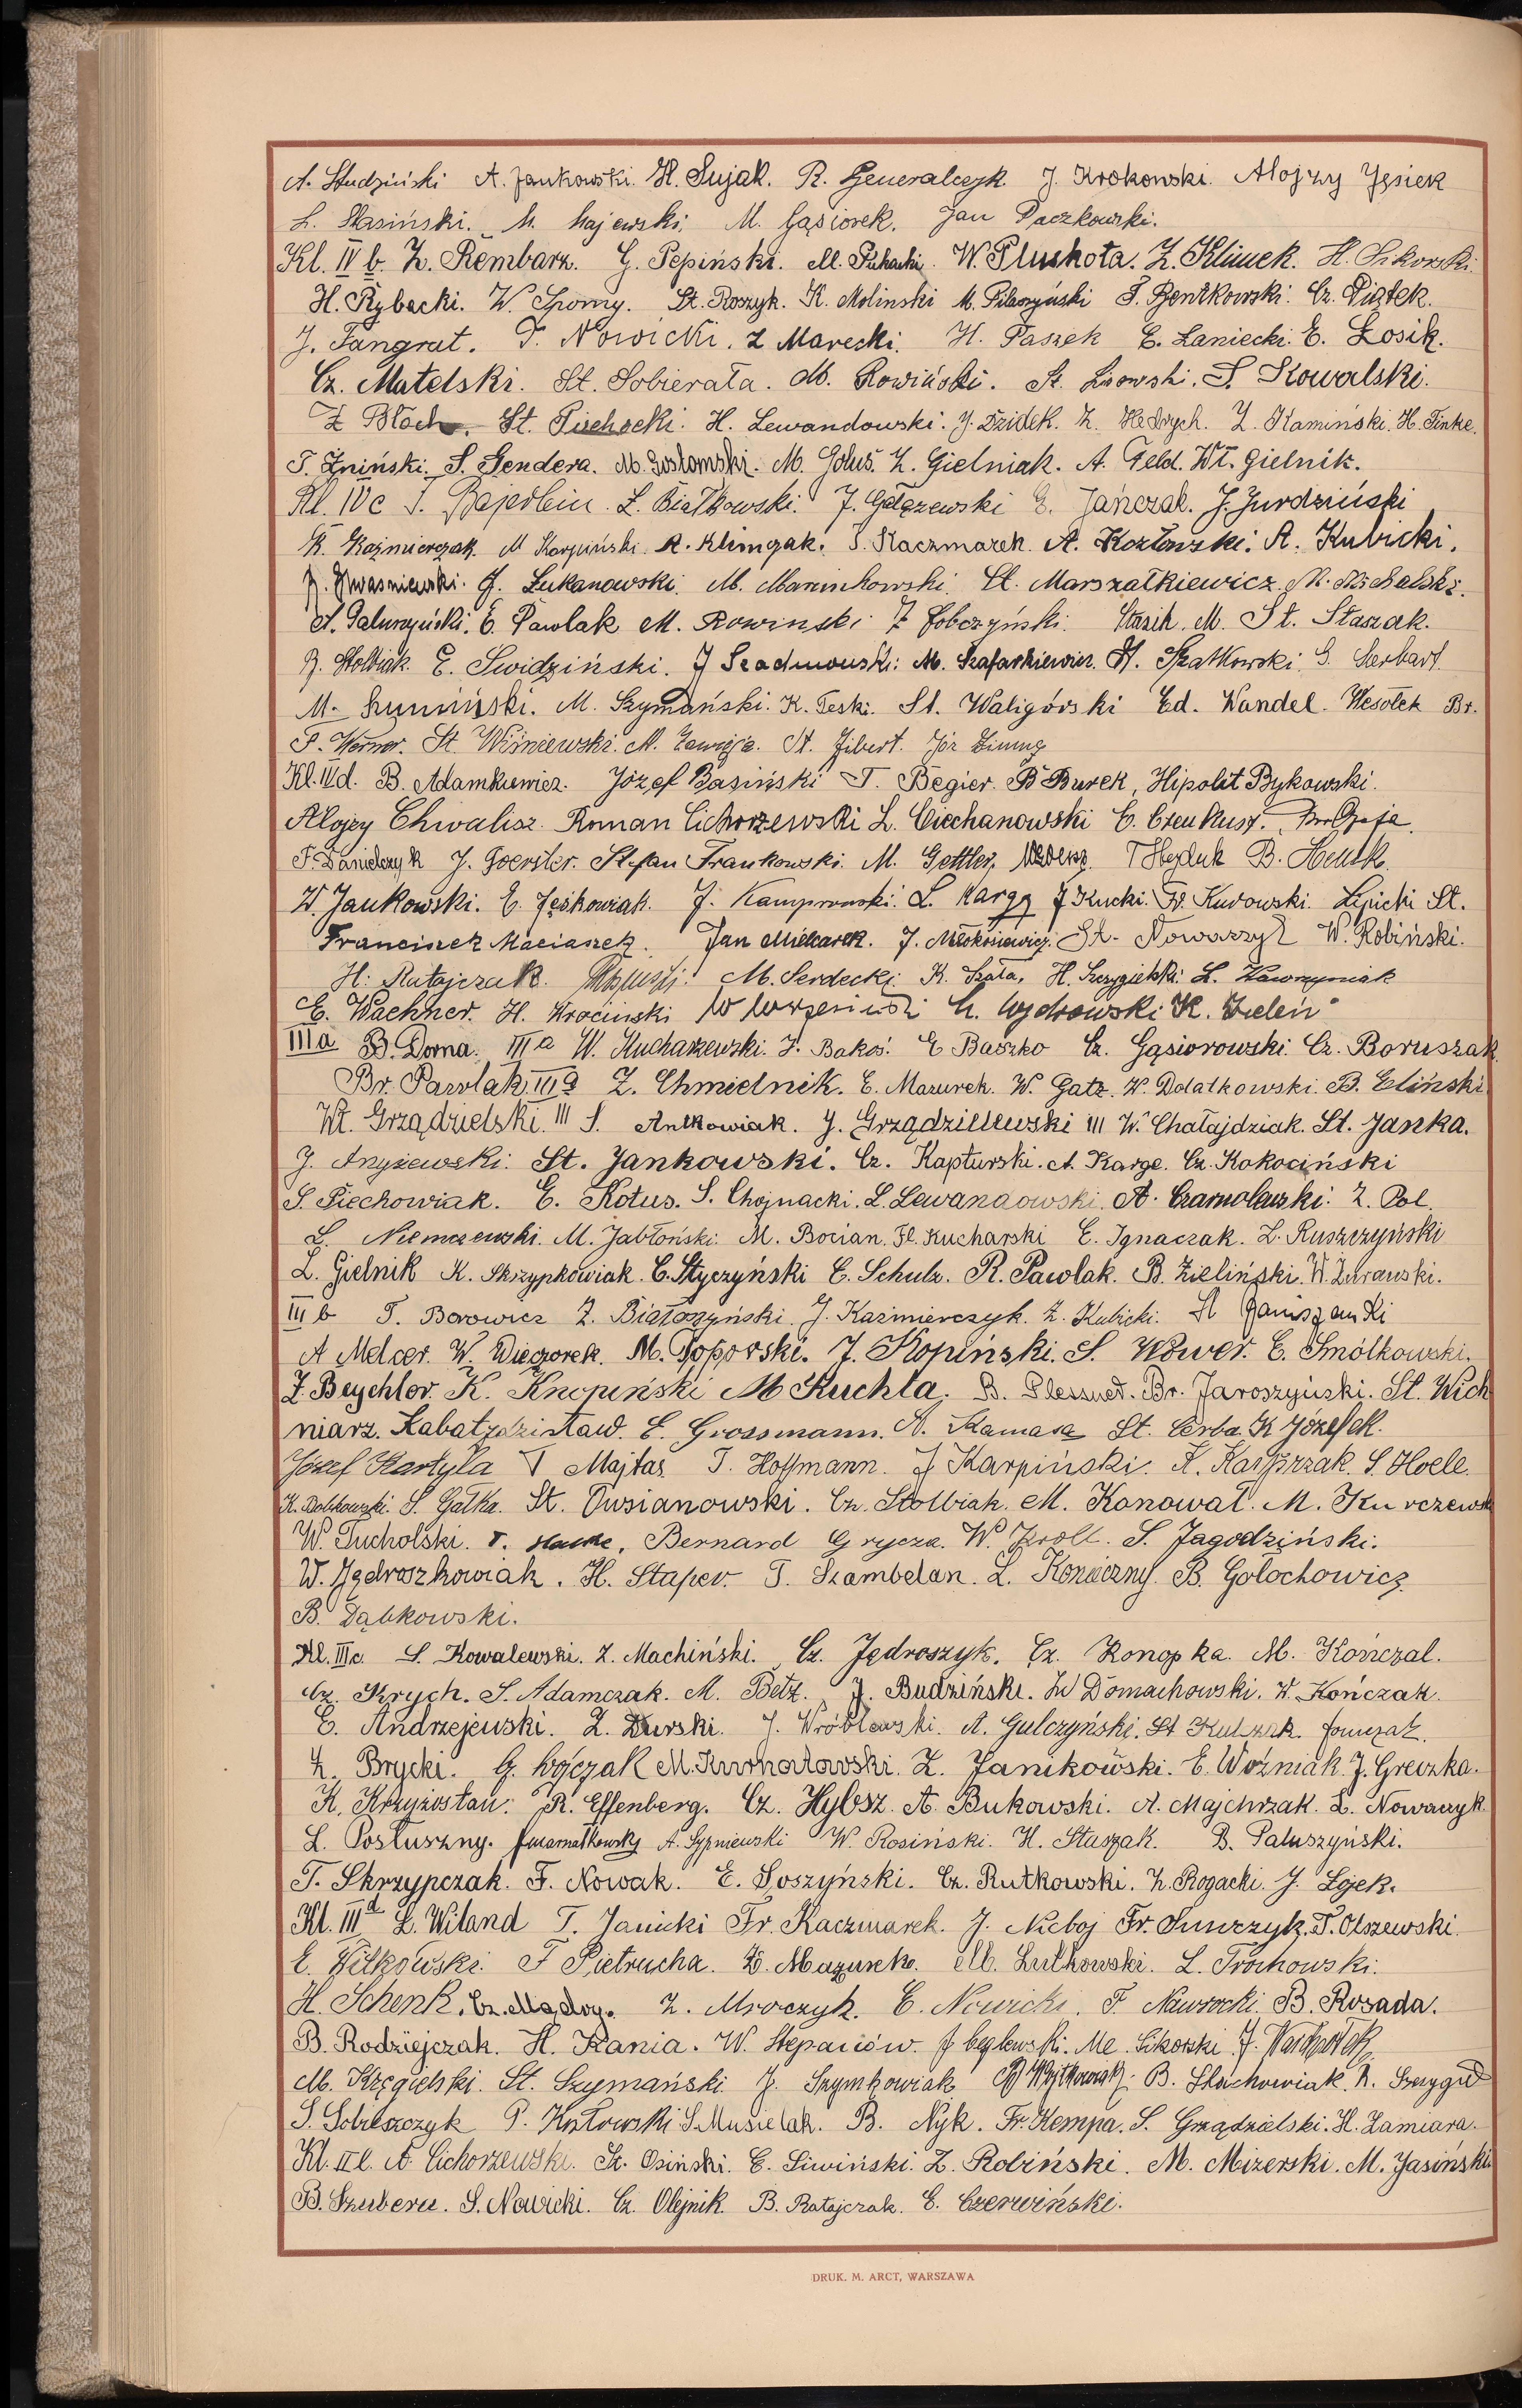 A. Studziński A. Jankowski. H. Sujak. R. Generalczyk J. Krokowski. Alojzy Jęsiek
L. Stasiński. M. Majewski. M. Gąsiorek. Jan Paczkowski.
Kl. IV b. Z. Rembarz. G. Pepiński. M. W. Pluskota. Z. Klimek. H. Sikorski.
H. Rybacki. W. St. Roszyk. K. Molinski M. S. Bentkowski. Cz. Piątek.
J. Fangrat. T. Nowicki. Z Marecki. H. Paszek E. Łaniecki. E. Łosik.
Cz. Matelski. St. Sobierała. M. Rowiński. St. Lisowski. S. Kowalski.
Z Błoch. St. Piechocki. H. Lewandowski. J. Dzidek. Z. Hedrych. Z. Kamiński. H. Finke.
T. Żniński. S. Gendera. M. Gostomski. M. Goluś. Z. Gielniak. A. Feld. Wł. Gielnik.
Kl. IV c T. Bajerlein. L. Białkowski. J. Gałązewski E. Jańczak. J. Jurdziński
K. Kaźmierczak. M Karpiński. R. Klimczak. S. Kaczmarek. A. Kozłowski. A. Kubicki.
J. Kwaśniewski. J. Łukanowski. M. Marcinkowski. St. Marszałkiewicz. M. Michalski.
A. Paluszyński. E. Pawlak M. Rowinski Z Sobczyński. Stasik. M. St. Staszak.
R. Stolbiak. E. Swidziński. J M. Szafarkiewicz. H. Szatkowski. G. Herbart.
M. Szumiński. M. Szymański. K. Teski. St. Waligórski Ed. Wandel. Wesołek Br.
P. Werner. St. Wiśniewski. M. Zawieja. A. Zibert. Józ Zimny
Kl. IV d. B. Adamkiewicz. Józef Basiński T. Begier. B Burek, Hipolit Bykowski.
Alojzy Chwalisz. Roman Cichorzewski L. Ciechanowski E. Czenkusz.
F. Danielczyk J. Foerster. Stefan Frankowski. M. Gettler. T Hejduk B. Hensk.
W. Jankowski. E. Jeśkowiak. J. L. Kargg J Kucki. Fr. Kurowski. Lipicki St.
Franciszek Maciaszek. Jan Mielcarek. J. St. Nowaczyk W. Robiński.
H. Ratajczak. M. Serdecki. K. Szała. H. Szczygielski. L. Wawrzyniak
E. Wachner. H. Krociński W Wrzesiński L. Wydrowski. K. Zieleń
III a B. Dorna. III a W. Kucharzewski. J. Bakoś. E Baszko Cz. Gąsiorowski. Cz. Boruszak.
Br. Pawlak. III a Z. Chmielnik. E. Mazurek. W. Gatz. W. Dolatkowski. B. Eliński
Wł. Grządzielski. III S. Antkowiak. J. Grządzielewski III W. Chałajdziak. St. Janka.
J. Anyżewski. St. Jankowski. Cz. Kapturski. A. Karge. Cz. Kokociński
S. Piechowiak. E. Kotus. S. Chojnacki. L. Lewandowski. A. Czarnoleuski. Z. Pol.
L. Niemczewski. M. Jabłoński. M. Bocian. Fl. Kucharski E. Ignaczak. Z. Ruszczyński
L. Gielnik K. Skrzypkowiak. C. Styczyński E. Schulz. R. Pawlak. B. Zieliński. W. Żurawski.
III b T. Borowicz Z. Białoszyński. J. Kaźmierczyk. Z. Kubicki. St Janiszewski
A Melcer. W. Wieczorek. M. Toporski. J. Kopiński. S. Wower. E. Smólkowski.
Z. Beychler. K. Knopiński M Kuchta. B. Plessner. Br. Jaroszyński. St. Wich
niarz. Łabatzdzisław. E. Grossmann. A. Kamasa St. Cerba. K Józefek.
Józef Kartyla T Majtas T. Hoffmann. J Karpiński. K. Kasprzak. S. Hoele.
K. Dolikowski. S. Gałka. St. Dusianowski. Cz. Stolbiak. M. Konował. M. Kurczewski
W. Tucholski. T. Bernard Grycza. W. Kroll. S. Jagodziński.
W. Jędroszkowiak. H. Staper. T. Szambelan. L. Konieczny. B. Gołochowicz
B. Dąbkowski.
Kl. III c. S. Kowalewski. Z. Machiński. Cz. Jędroszyk. Cz. Konopka. M. Kończal.
Cz. Krych. S. Adamczak. M. Betz. J. Budziński. W Domachowski. W. Kończak.
E. Andrzejewski. Z. Durski. J. Wróblewski. A. Gulczyński. St Kulszak.
Z. Brycki. G. Wójczak M. Kurnatowski. Z. Janikowski. E. Woźniak. J. Greczka.
K. Krzyżostan. R. Effenberg. Cz. Hybsz. A. Bukowski. A. Majchrzak. L. Nowaczyk.
L. Posłuszny. A. Sypniewski W. Rosiński. H. Staszak. B. Paluszyński.
T. Skrzypczak. F. Nowak. E. Soszyński. Cz. Rutkowski. Z. Rogacki. J. Łojek.
Kl. III d L. Wiland T. Janicki Fr. Kaczmarek. J. Nieboj Fr. Surczyk. T. Olszewski.
E. Witkowski. F Pietrucha. Z. Mazurek. M. Lutkowski. L. Trochowski.
H. Schenk. Cz. Mądry. Z. Mroczyk. E. Nowicki. F. Nawrocki. B. Rosada.
B. Rodziejczak. H. Kania. W. Stepaniów. J Ceglewski. Me. Sikorski. J.
M. Kręgielski. St. Szymański. J. Szymkowiak Wojtkowiak. B. Stachowiak. R. Szczygieł
S. Sobieszczyk P. Kozłowski S. Musielak. B. Nyk. Fr. Kempa. S. Grządzielski. H. Zamiara.
Kl. II b. A. Cichorzewski. St. Osiński. E. Siwiński. Z. Robiński. M. Mizerski. M. Jasiński.
B. Szubert. S. Nowicki. Cz. Olejnik. B. Ratajczak. E. Czerwiński.
DRUK. M. ARCT, WARSZAWA